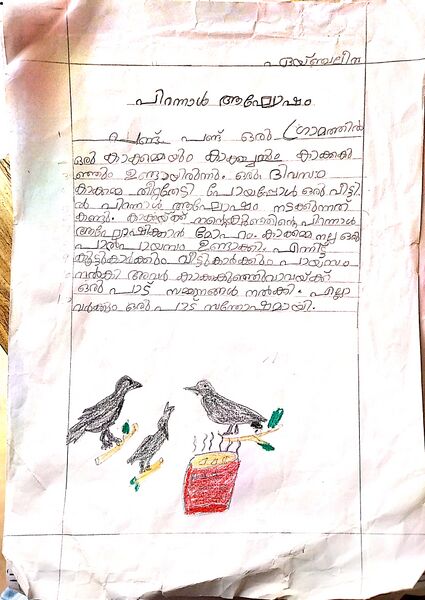 ഏയ്ഞ്ചലീന
പിറന്നാൾ ആഘോഷം
പണ്ട് പണ്ട് ഒരു ഗ്രാമത്തിൽ
ഒരു കാക്കമ്മയും കാക്കച്ചനും കാക്കകു
ഞ്ഞും ഉണ്ടായിരുന്നു. ഒരു ദിവസം
കാക്കമ്മ തീറ്റതേടി പോയപ്പോൾ ഒരു വീട്ടി
ൽ പിറന്നാൾ ആഘോഷം നടക്കുന്നത്
കണ്ടു. കാക്കയ്ക്ക് തന്റെകുഞ്ഞിന്റെ പിറന്നാൾ
ആഘോഷിക്കാൻ മോഹം. കാക്കമ്മ നല്ല ഒരു
പാൽപായസം ഉണ്ടാക്കി. എന്നിട്ട്
കൂട്ടുകാർക്കും വീട്ടുകാർക്കും പായസം
നൽകി അവർ കാക്കകുഞ്ഞിവാവയ്ക്ക്
ഒരു പാട് സമ്മാനങ്ങൾ നൽകി. എല്ലാ
വർക്കും ഒരു പാട് സന്തോഷമായി.